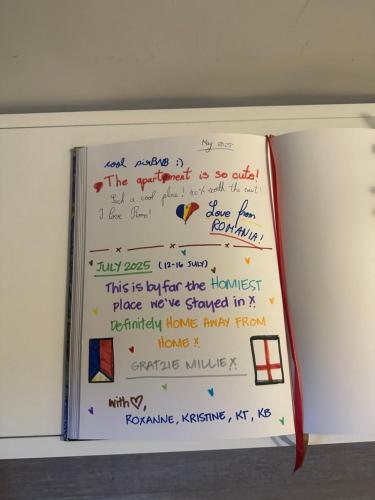 May 2025
cool airBNB :)
The apartment is so cute!
Such a cool place! 10% worth the visit!
I love Rome!
Love from
ROMANIA!
JULY 2025 (12-16 JULY)
This is by far the HOMIEST
place we've stayed in
Definitely HOME AWAY FROM
HOME
GRATZIE MILLIE
with
ROXANNE, KRISTINE, KT, KB